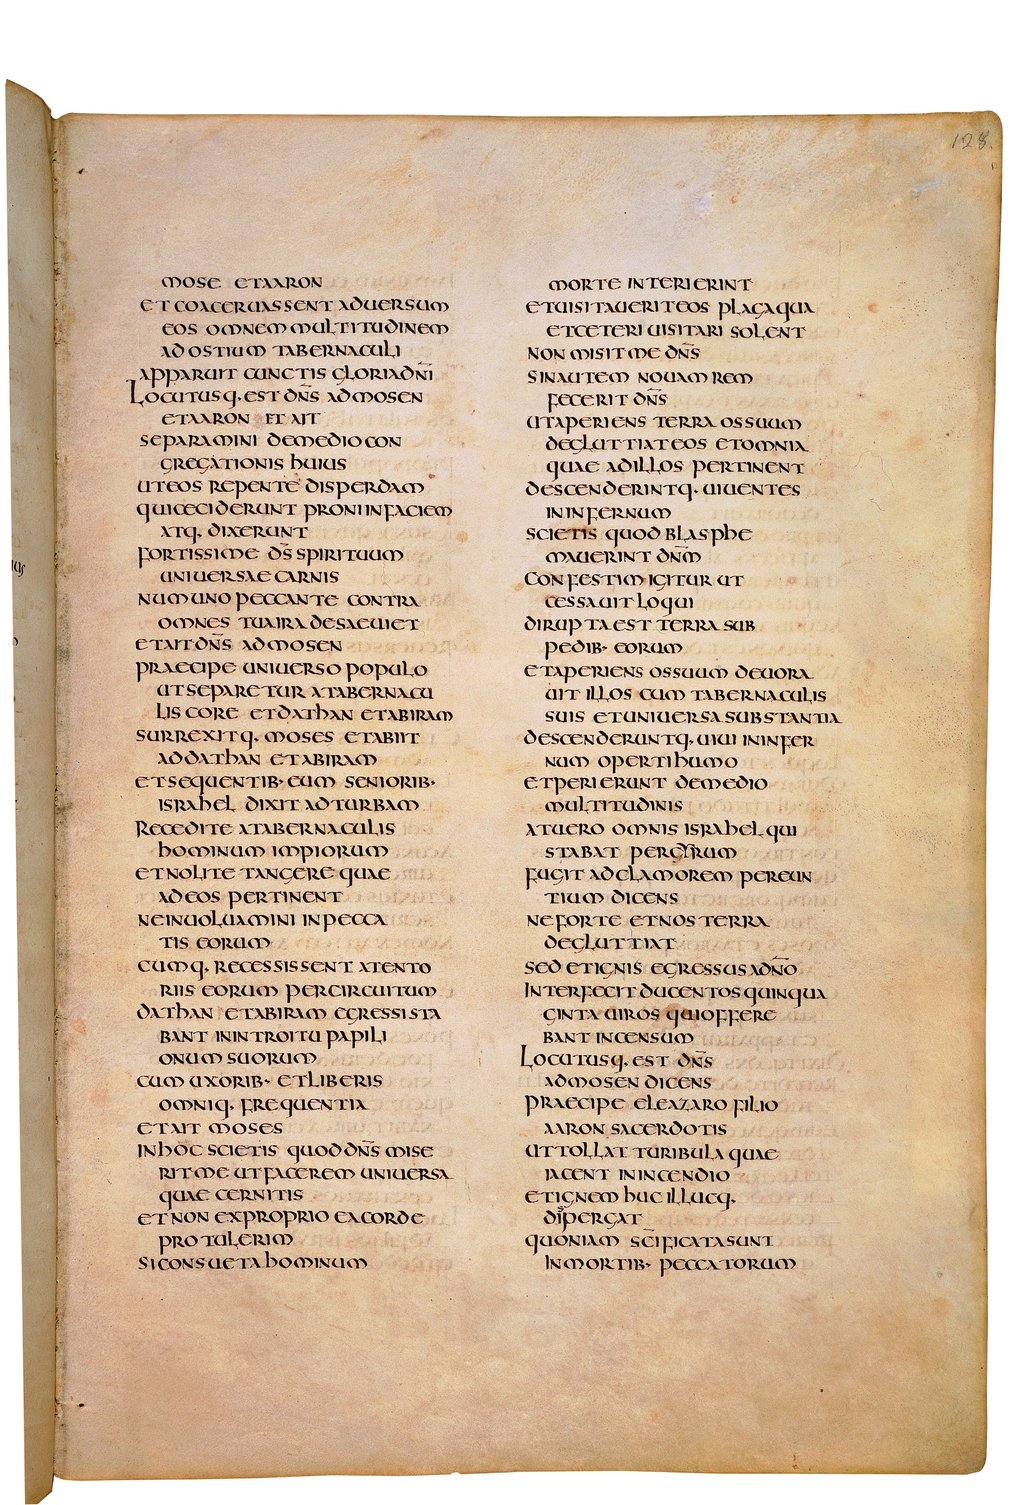 128.
MOSE ET AARON
ET COACERUASSENT ADUERSUM
EOS OMNEM MULTITUDINEM
AD OSTIUM TABERNACULI
APPARUIT CUNCTIS GLORIA DN̅I
LOCUTUSQ· EST DN̅S AD MOSEN
ET AARON ET AIT
SEPARAMINI DE MEDIO CON
GREGATIONIS HUIUS
UT EOS REPENTE DISPERDAM
QUI CECIDERUNT PRONI IN FACIEM
ATQ· DIXERUNT
FORTISSIME D̅S SPIRITUUM
UNIUERSAE CARNIS
NUM UNO PECCANTE CONTRA
OMNES TUA IRA DESAEUIET
ET AIT DN̅S AD MOSEN
PRAECIPE UNIUERSO POPULO
UT SEPARETUR A TABERNACU
LIS CORE ET DATHAN ET ABIRAM
SURREXITQ· MOSES ET ABIIT
AD DATHAN ET ABIRAM
ET SEQUENTIB· EUM SENIORIB·
ISRAHEL DIXIT AD TURBAM
RECEDITE A TABERNACULIS
HOMINUM IMPIORUM
ET NOLITE TANGERE QUAE
AD EOS PERTINENT
NE INUOLUAMINI IN PECCA
TIS EORUM
CUMQ· RECESSISSENT A TENTO
RIIS EORUM PER CIRCUITUM
DATHAN ET ABIRAM EGRESSI STA
BANT IN INTROITU PAPILI
ONUM SUORUM
CUM UXORIB· ET LIBERIS
OMNIQ· FREQUENTIA
ET AIT MOSES
IN HOC SCIETIS QUOD DN̅S MISE
RIT ME UT FACEREM UNIUERSA
QUAE CERNITIS
ET NON EX PROPRIO EA CORDE
PROTULERIM
SI CONSUETA HOMINUM
MORTE INTERIERINT
ET UISITAUERIT EOS PLAGA QUA
ET CETERI UISITARI SOLENT
NON MISIT ME DN̅S
SIN AUTEM NOUAM REM
FECERIT DN̅S
UT APERIENS TERRA OS SUUM
DEGLUTTIAT EOS ET OMNIA
QUAE AD ILLOS PERTINENT
DESCENDERINTQ· UIUENTES
IN INFERNUM
SCIETIS QUOD BLASPHE
MAUERINT DN̅M
CONFESTIM IGITUR UT
CESSAUIT LOQUI
DIRUPTA EST TERRA SUB
PEDIB· EORUM
ET APERIENS OS SUUM DEUORA
UIT ILLOS CUM TABERNACULIS
SUIS ET UNIUERSA SUBSTANTIA
DESCENDERUNTQ· UIUI IN INFER
NUM OPERTI HUMO
ET PERIERUNT DE MEDIO
MULTITUDINIS
AT UERO OMNIS ISRAHEL QUI
STABAT PER GYRUM
FUGIT AD CLAMOREM PEREUN
TIUM DICENS
NE FORTE ET NOS TERRA
DEGLUTTIAT
SED ET IGNIS EGRESSUS A DN̅O
INTERFECIT DUCENTOS QUINQUA
GINTA UIROS QUI OFFERE
BANT INCENSUM
LOCUTUSQ· EST DN̅S
AD MOSEN DICENS
PRAECIPE ELEAZARO FILIO
AARON SACERDOTIS
UT TOLLAT TURIBULA QUAE
IACENT IN INCENDIO
ET IGNEM HUC ILLUCQ·
DISPERGAT
QUONIAM SC̅IFICATA SUNT
IN MORTIB· PECCATORUM